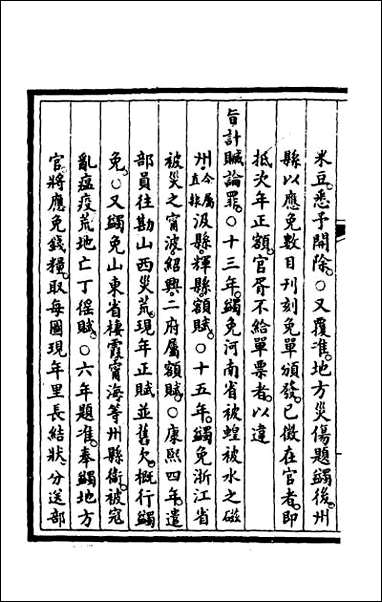 米豆悉予開除○又覆准地方災傷題蠲後州
縣以應免數目刊刻免單頒發已徵在官者即
抵次年正額官胥不給單票者以違
旨計贓論罪○十三年蠲免河南省被蝗被水之磁
州今屬直隸汲縣輝縣額賦○十五年蠲免浙江省
被災之甯波紹興二府屬額賦○康熙四年遣
部員往勘山西災荒現年正賦並舊欠概行蠲
免○又蠲免山東省棲霞甯海等州縣衛被寇
亂瘟疫荒地亡丁徭賦○六年題准奉蠲地方
官將應免錢糧取每圖現年里長結狀分送部